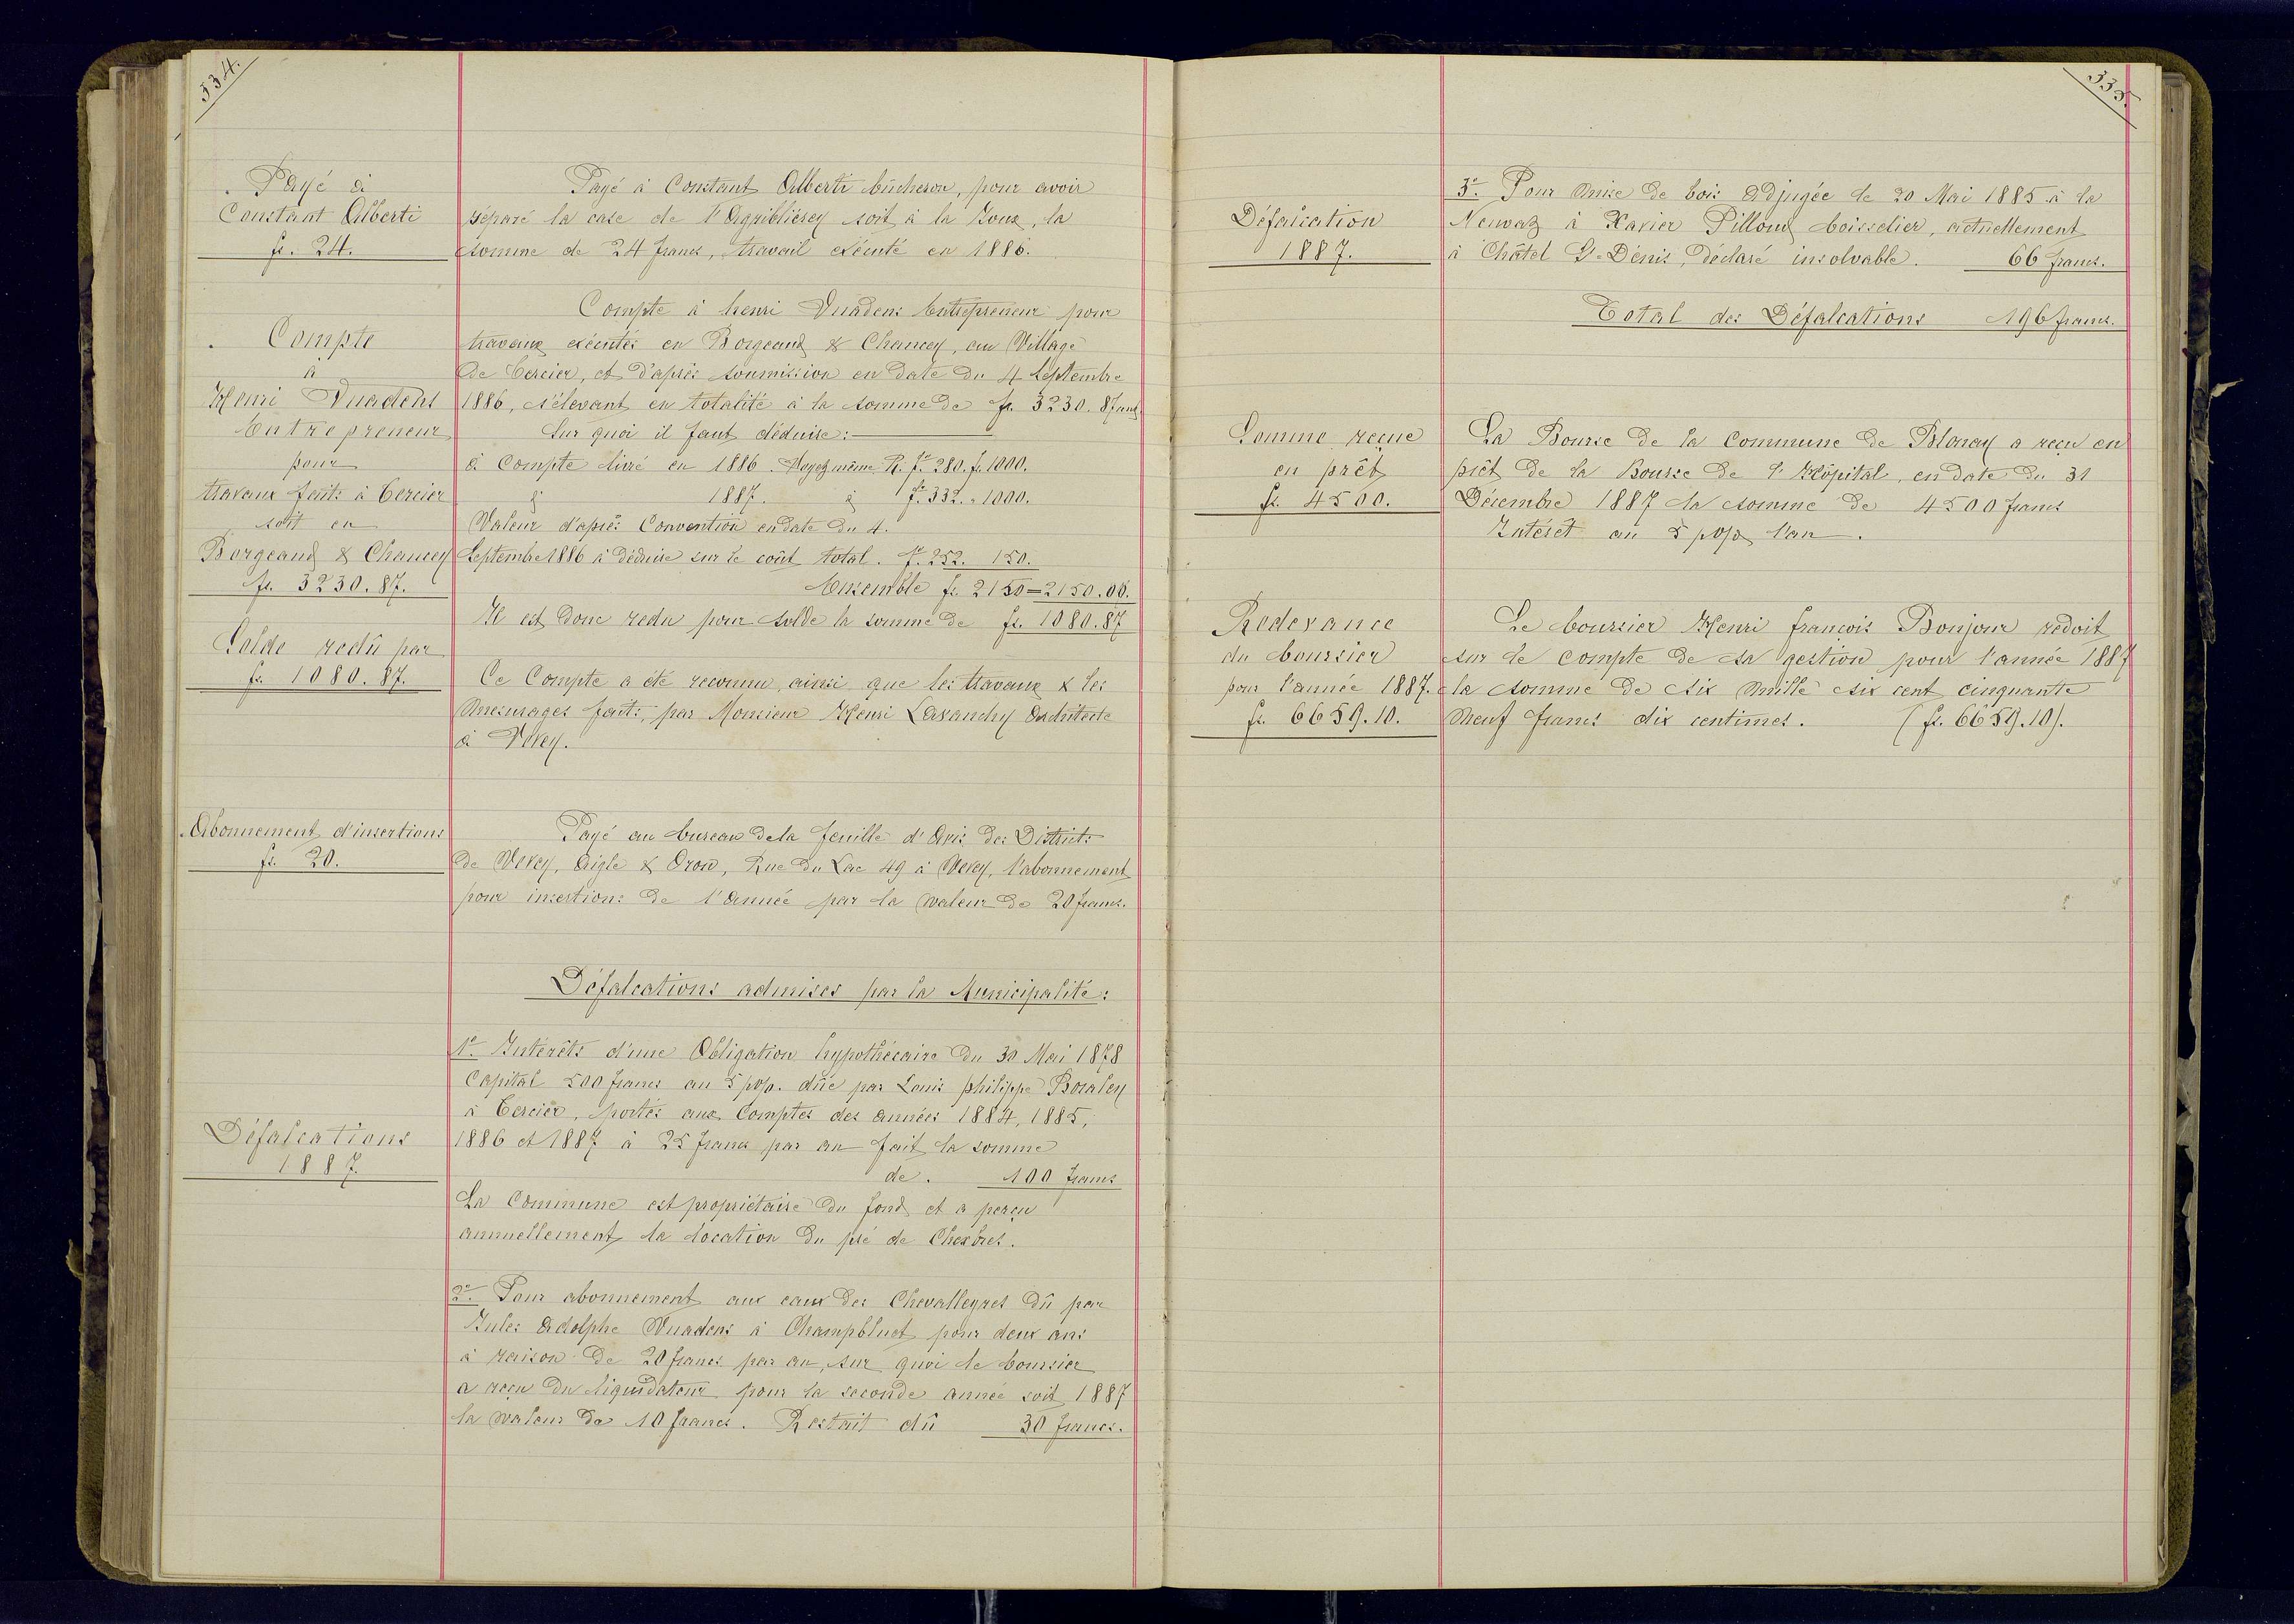 334.
Payé à
Constant Alberti
fr. 24.
Payé à Constant Alberti bûcheron, pour avoir
séparé la case de l'Agribliérey soit à la Joux, la
somme de 24 francs, travail exécuté en 1886.
Compte
à
Henri Vuadens
Entrepreneur
pour
travaux faits à Cercier
soit en
Borgeaud & Chancey
fr. 3230.87.
Compte à henri Vuadens Entrepreneur pour
travaux exécutés en Borgeaud & Chancey, au Village
de Cercier, et d'après soumission en date du 4 Septembre
1886, s'élevant en totalité à la somme de fr. 3230.87
Sur quoi il faut déduire:
à Compte livré en 1886. Voyez même R. fº 280. f. 1000.
dº 1887. dº fº 332. " 1000.
Valeur d'après Convention en date du 4.
Septembre 1886 à déduire sur le coût total. fº 252. 150.
Ensemble fr. 2150=2150.00.
Il est donc redu pour solde la somme de fr. 1080.87
Solde redû par
fr. 1080.87.
Ce Compte a été reconnu, ainsi que les travaux & les
mesurages faits, par Monsieur Henri Lavanchy Architecte
à Vevey.
Abonnement d'insertions
fr. 20.
Payé au bureau de la feuille d'Avis des Districts
de Vevey, Aigle & Oron, Rue du Lac 49 à Vevey, l'abonnement
pour insertions de l'année par la valeur de 20 francs.
Défalcations admises par la Municipalité:
Défalcations
1887.
1º. Intérêts d'une Obligation hypothécaire du 30 Mai 1878
Capital 500 francs au 5 p%. dûe par Louis philippe Bonaley
à Cercier, portés aux Comptes des années 1884, 1885,
1886 et 1887 à 25 francs par an fait la somme
de. 100 francs
La Commune est propriétaire du fond et a perçu
annuellement la location du pré de Chexbres.
2º. Pour abonnement aux eaux des Chevalleyres dû par
Jules Adolphe Vuadens à Champbluet pour deux ans
à raison de 20 francs par an, sur quoi le boursier
a reçu du liquidateur pour la seconde année soit 1887
la valeur de 10 francs. Restait dû 30 francs.
335.
Défalcation
1887.
3º. Pour mise de bois adjugée le 20 Mai 1885 à la
Neuvaz à Xavier Pilloud boisselier, actuellement
à Châtel St-Dénis, déclaré insolvable. 66 francs.
Total des Défalcations 196 francs.
Somme reçue
en prêt
fr. 4500.
La Bourse de la Commune de Blonay a reçu en
prêt de la Bourse de l'Hôpital, en date du 31
Décembre 1887 la somme de 4500 francs
Intérêt au 5 p% l'an.
Redevance
du boursier
pour l'année 1887.
fr. 6659.10.
Le boursier Henri françois Bonjour redoit
sur le compte de sa gestion pour l'année 1887
la somme de six mille six cent cinquante
neuf francs dix centimes. (fr. 6659.10).